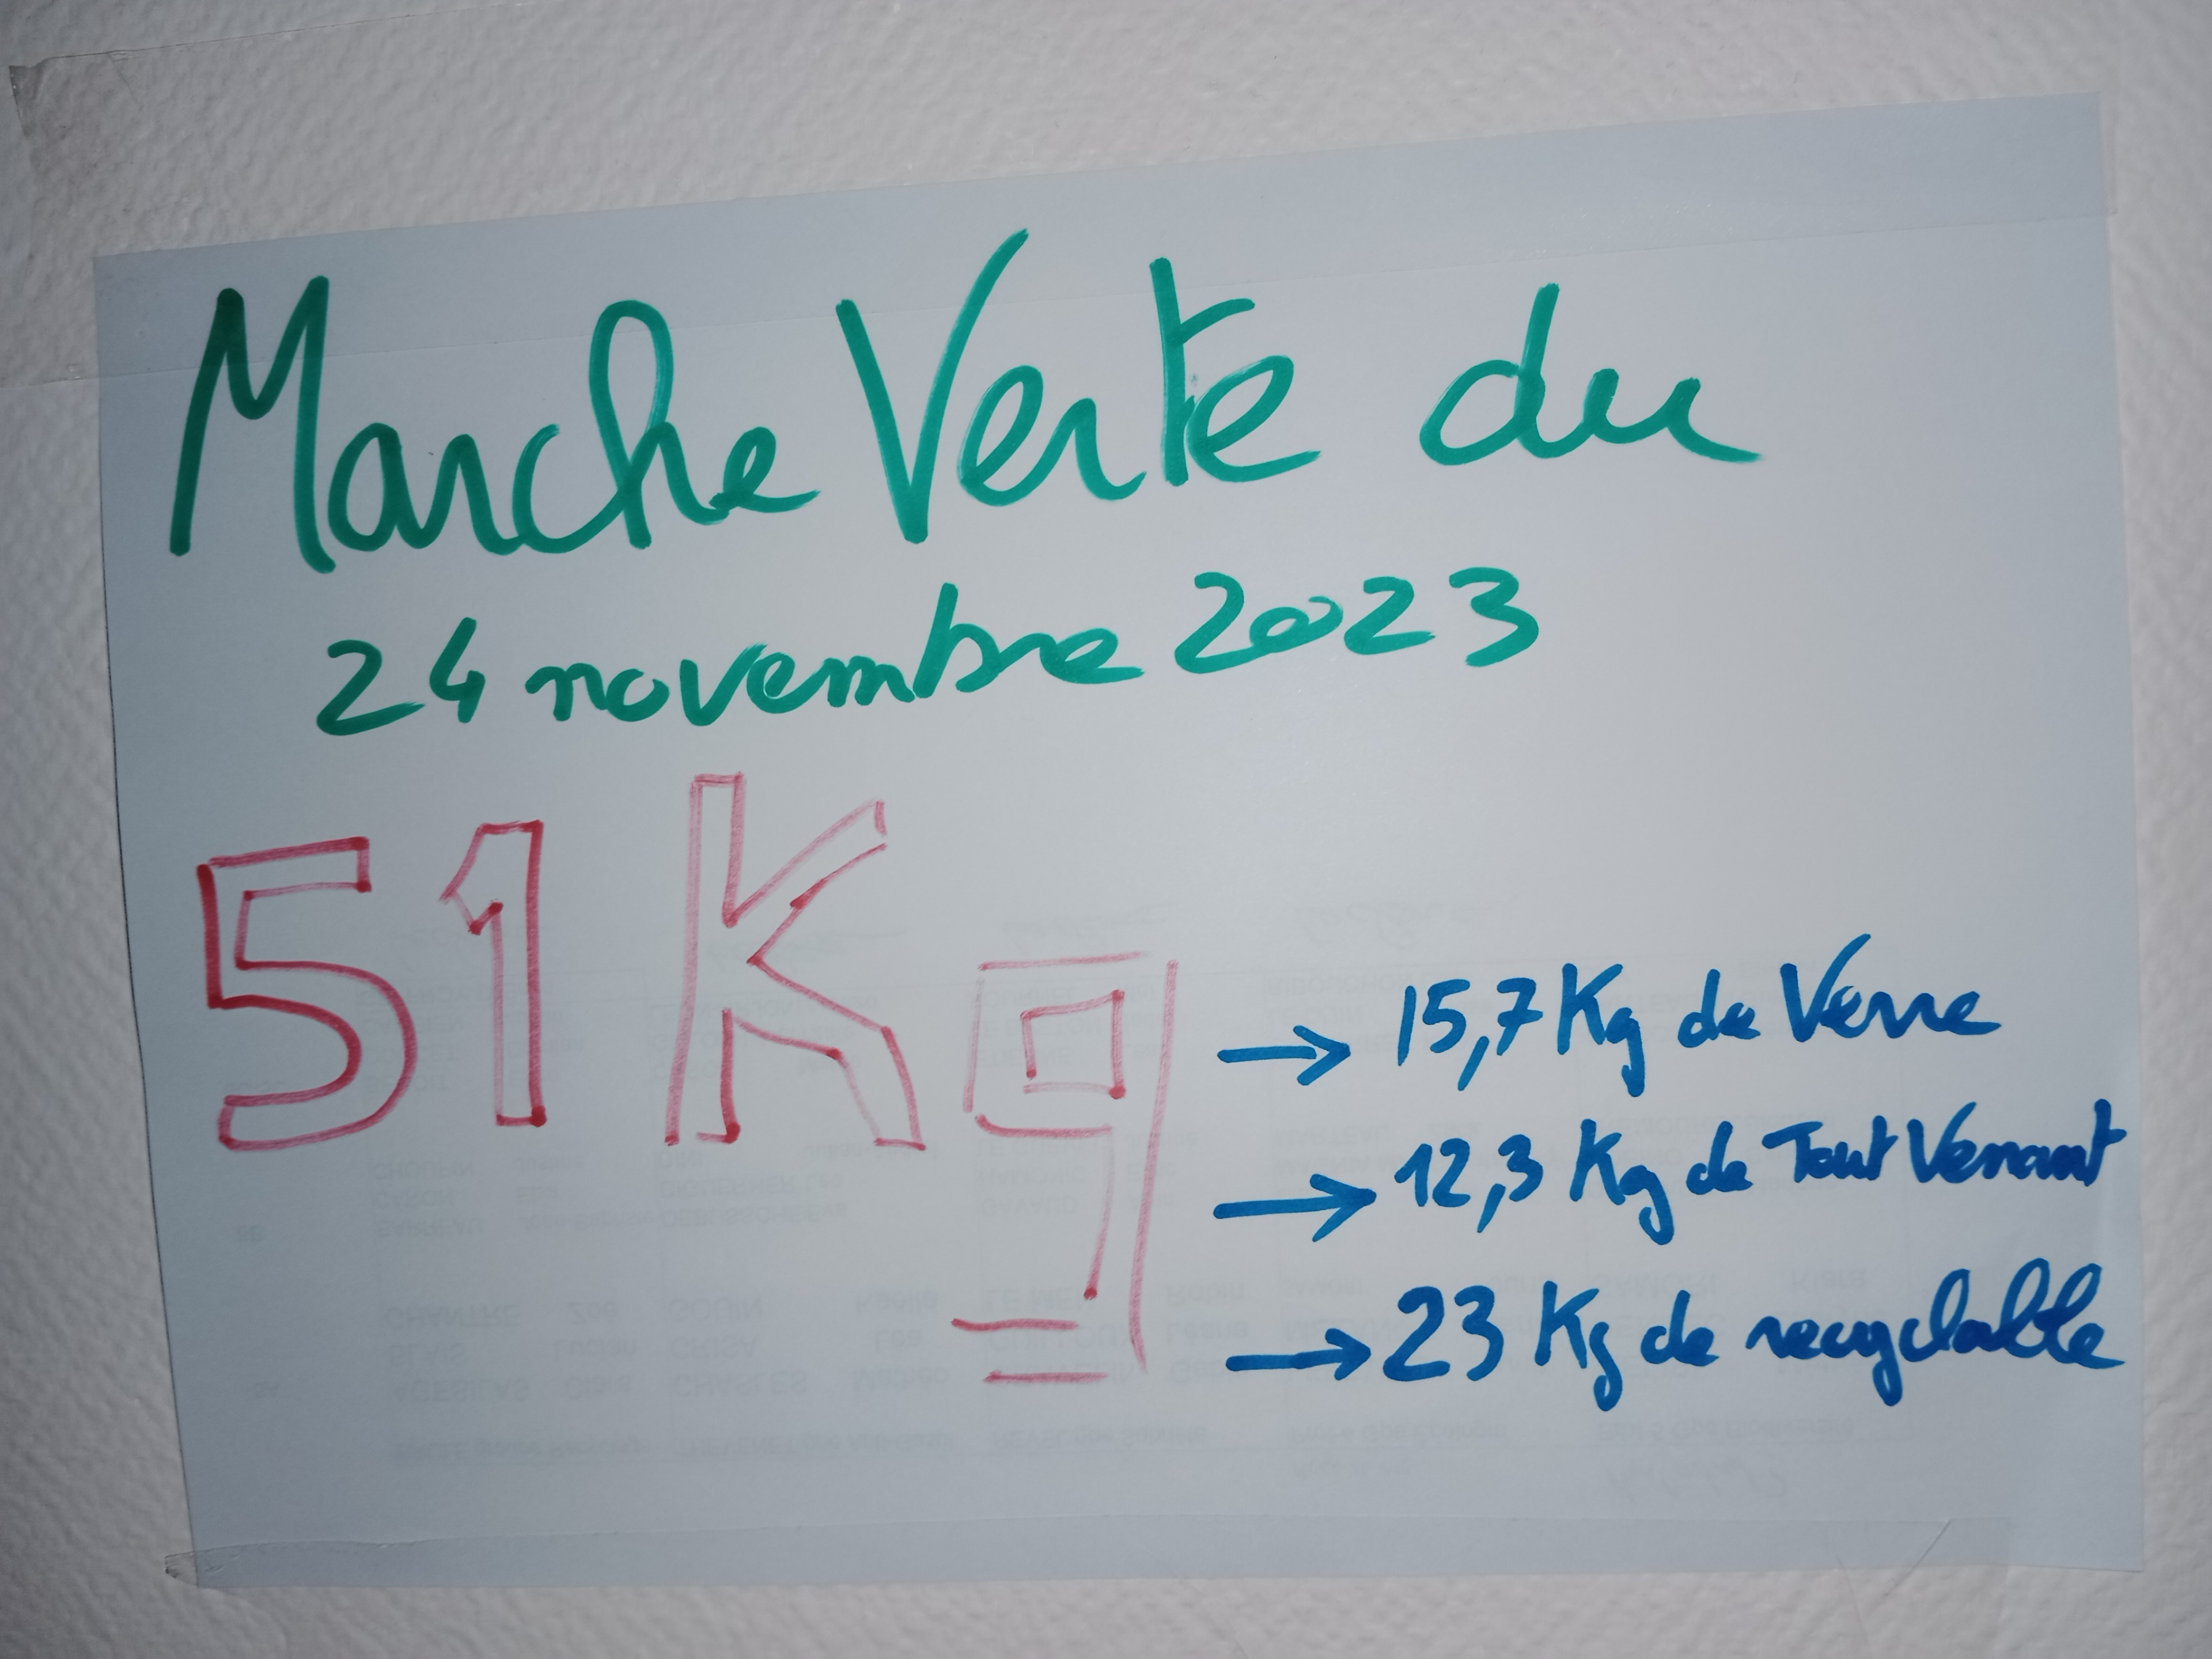 Marche Verte du
24 novembre 2023
51 Kg
→ 15,7 Kg de Verre
→ 12,3 Kg de Tout Venant
→ 23 Kg de recyclable